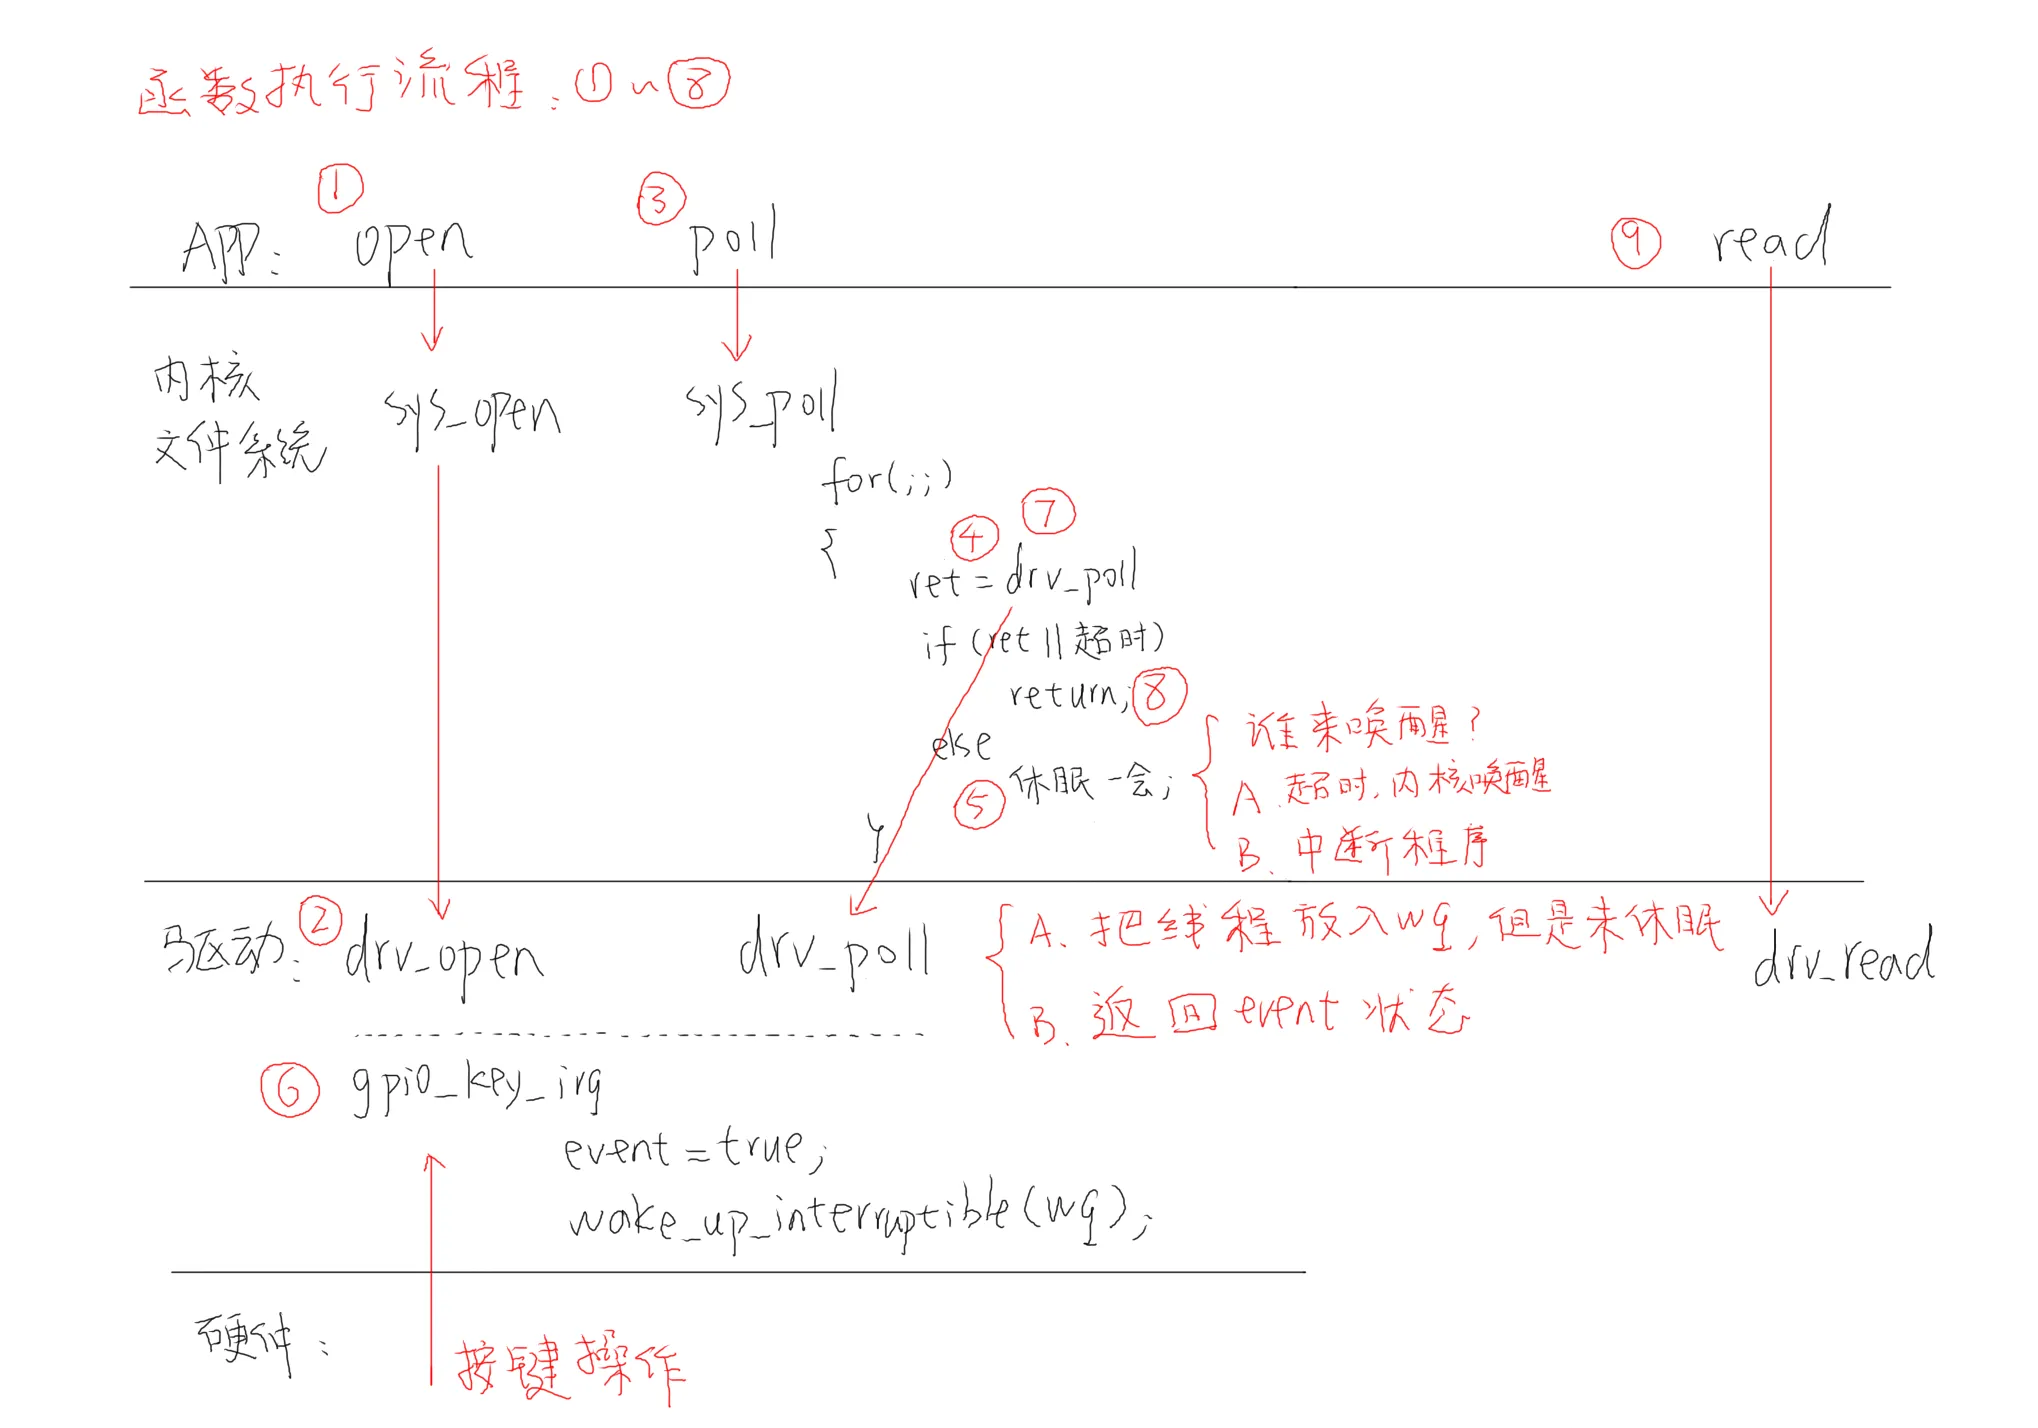 函数执行流程:①~⑧
① ③
APP: open poll ⑨ read
内核
文件系统
sys_open sys_poll
for(;;)
{
④ ⑦
ret = drv_poll
if (ret || 超时)
return; ⑧
else
⑤ 休眠一会;
谁来唤醒?
A. 超时,内核唤醒
B. 中断程序
y
驱动: ② drv_open drv_poll drv_read
A. 把线程放入wq,但是未休眠
B. 返回event状态
⑥ gpio_key_irq
event = true;
wake_up_interruptible(wq);
硬件:
按键操作